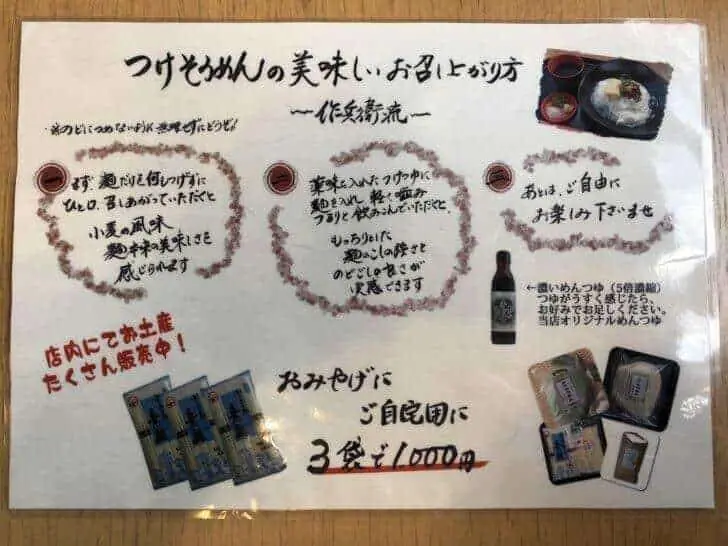 つけそうめんの美味しいお召し上がり方
〜作兵衛流〜
・喉のどにつめないように無理せずにどうぞ!
一
まず、麺だけを何もつけずに
ひと口、召しあがっていただくと
小麦の風味
麺本来の美味しさを
感じられます
二
薬味を入れたつけつゆに
麺を入れ、軽く噛み
つるりと飲みこんでいただくと、
もっちりした
麺のこしの強さと
のどごしの良さが
実感できます
三
あとは、ご自由に
お楽しみ下さいませ
←濃いめんつゆ(5倍濃縮)
つゆがうすく感じたら、
お好みでお足しください。
当店オリジナルめんつゆ
店内にてお土産
たくさん販売中!
おみやげに
ご自宅用に
3袋で1,000円